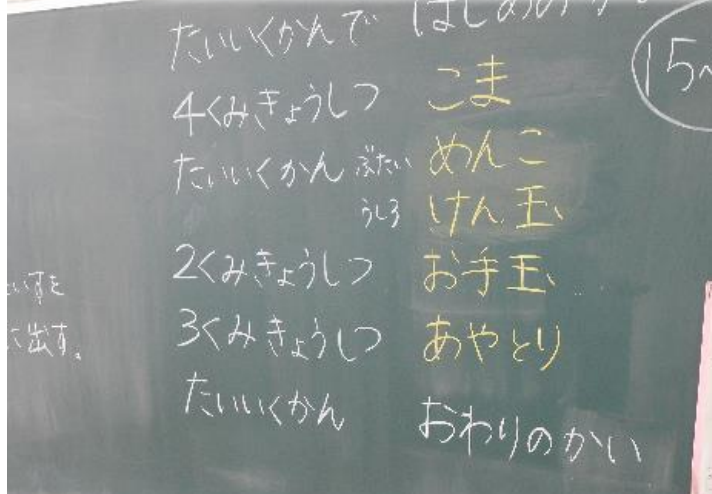 たいいくかんで はじめのか
4くみきょうしつ こま
たいいくかん ぶたい めんこ
うしろ けん玉
2くみきょうしつ お手玉
3くみきょうしつ あやとり
たいいくかん おわりのかい
15~
いすを
に出す。